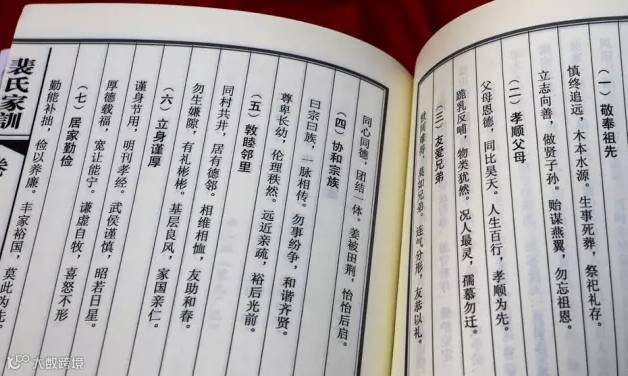 （一）敬奉祖先
慎终追远，木本水源。生事死葬，祭祀礼存。
立志向善，做贤子孙。贻谋燕翼，勿忘祖恩。
（二）孝顺父母
父母恩德，同比昊天。人生百行，孝顺为先。
跪乳反哺，物类犹然。况人最灵，孺慕勿迁。
（三）友爱兄弟
莫如兄弟。连气分形，友恭以礼。
同心同德，团结一体。姜被田荆，怡怡后启。
（四）协和宗族
曰宗曰族，一脉相传。勿事纷争，和谐齐贤。
尊卑长幼，伦理秩然。远近亲疏，裕后光前。
（五）敦睦邻里
同村共井，居有德邻。相维相恤，友助和春。
勿生嫌隙，有礼彬彬。基层良风，家国亲仁。
（六）立身谨厚
谨身节用，明刊孝经。武侯谨慎，昭若日星。
厚德载福，宽让能宁。谦虚自牧，喜怒不形
（七）居家勤俭
勤能补拙，俭以养廉。丰家裕国，莫此为先。
裴氏家训
大数跨境